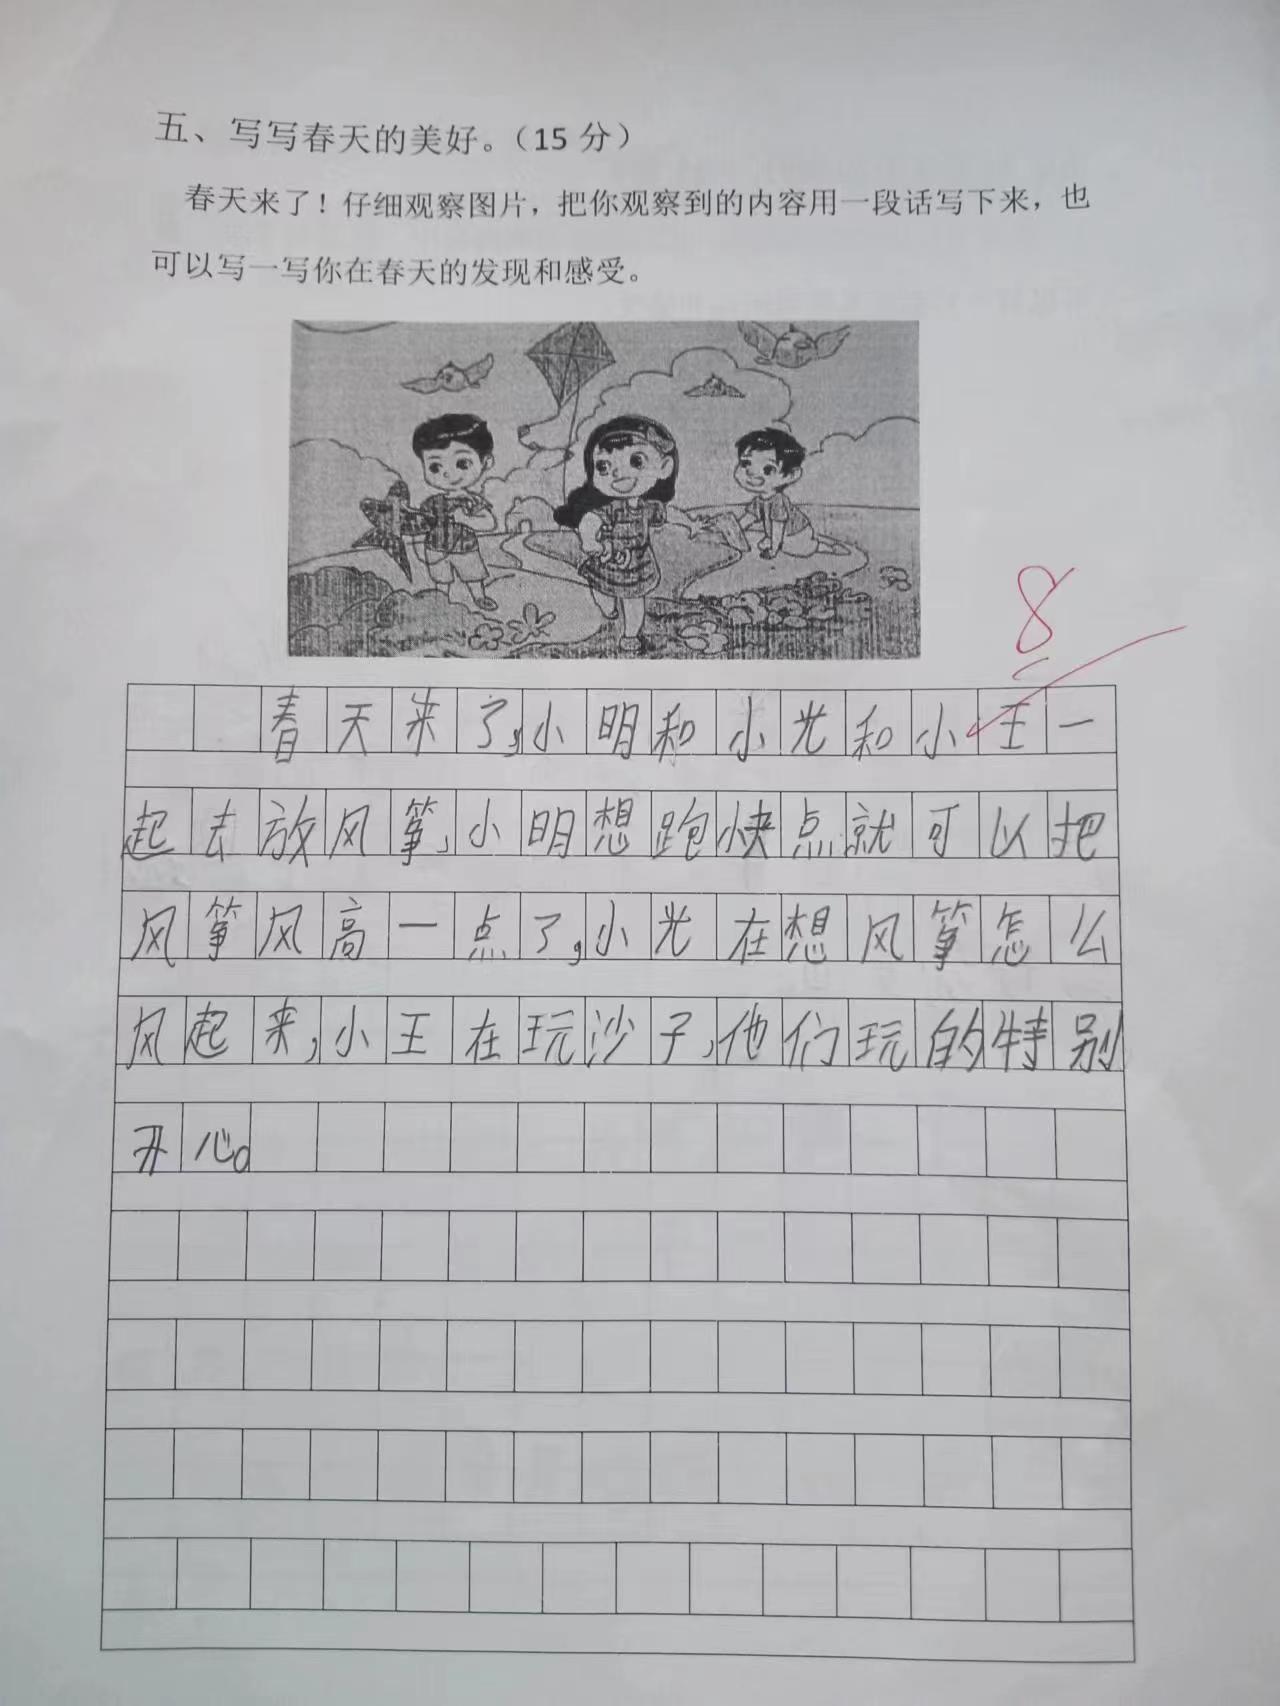 五、写写春天的美好。（15 分）
春天来了！仔细观察图片，把你观察到的内容用一段话写下来，也
可以写一写你在春天的发现和感受。
8
春天来了,小明和小光和小王一
起去放风筝,小明想跑快点就可以把
风筝风高一点了,小光在想风筝怎么
风起来,小王在玩沙子,他们玩的特别
开心。